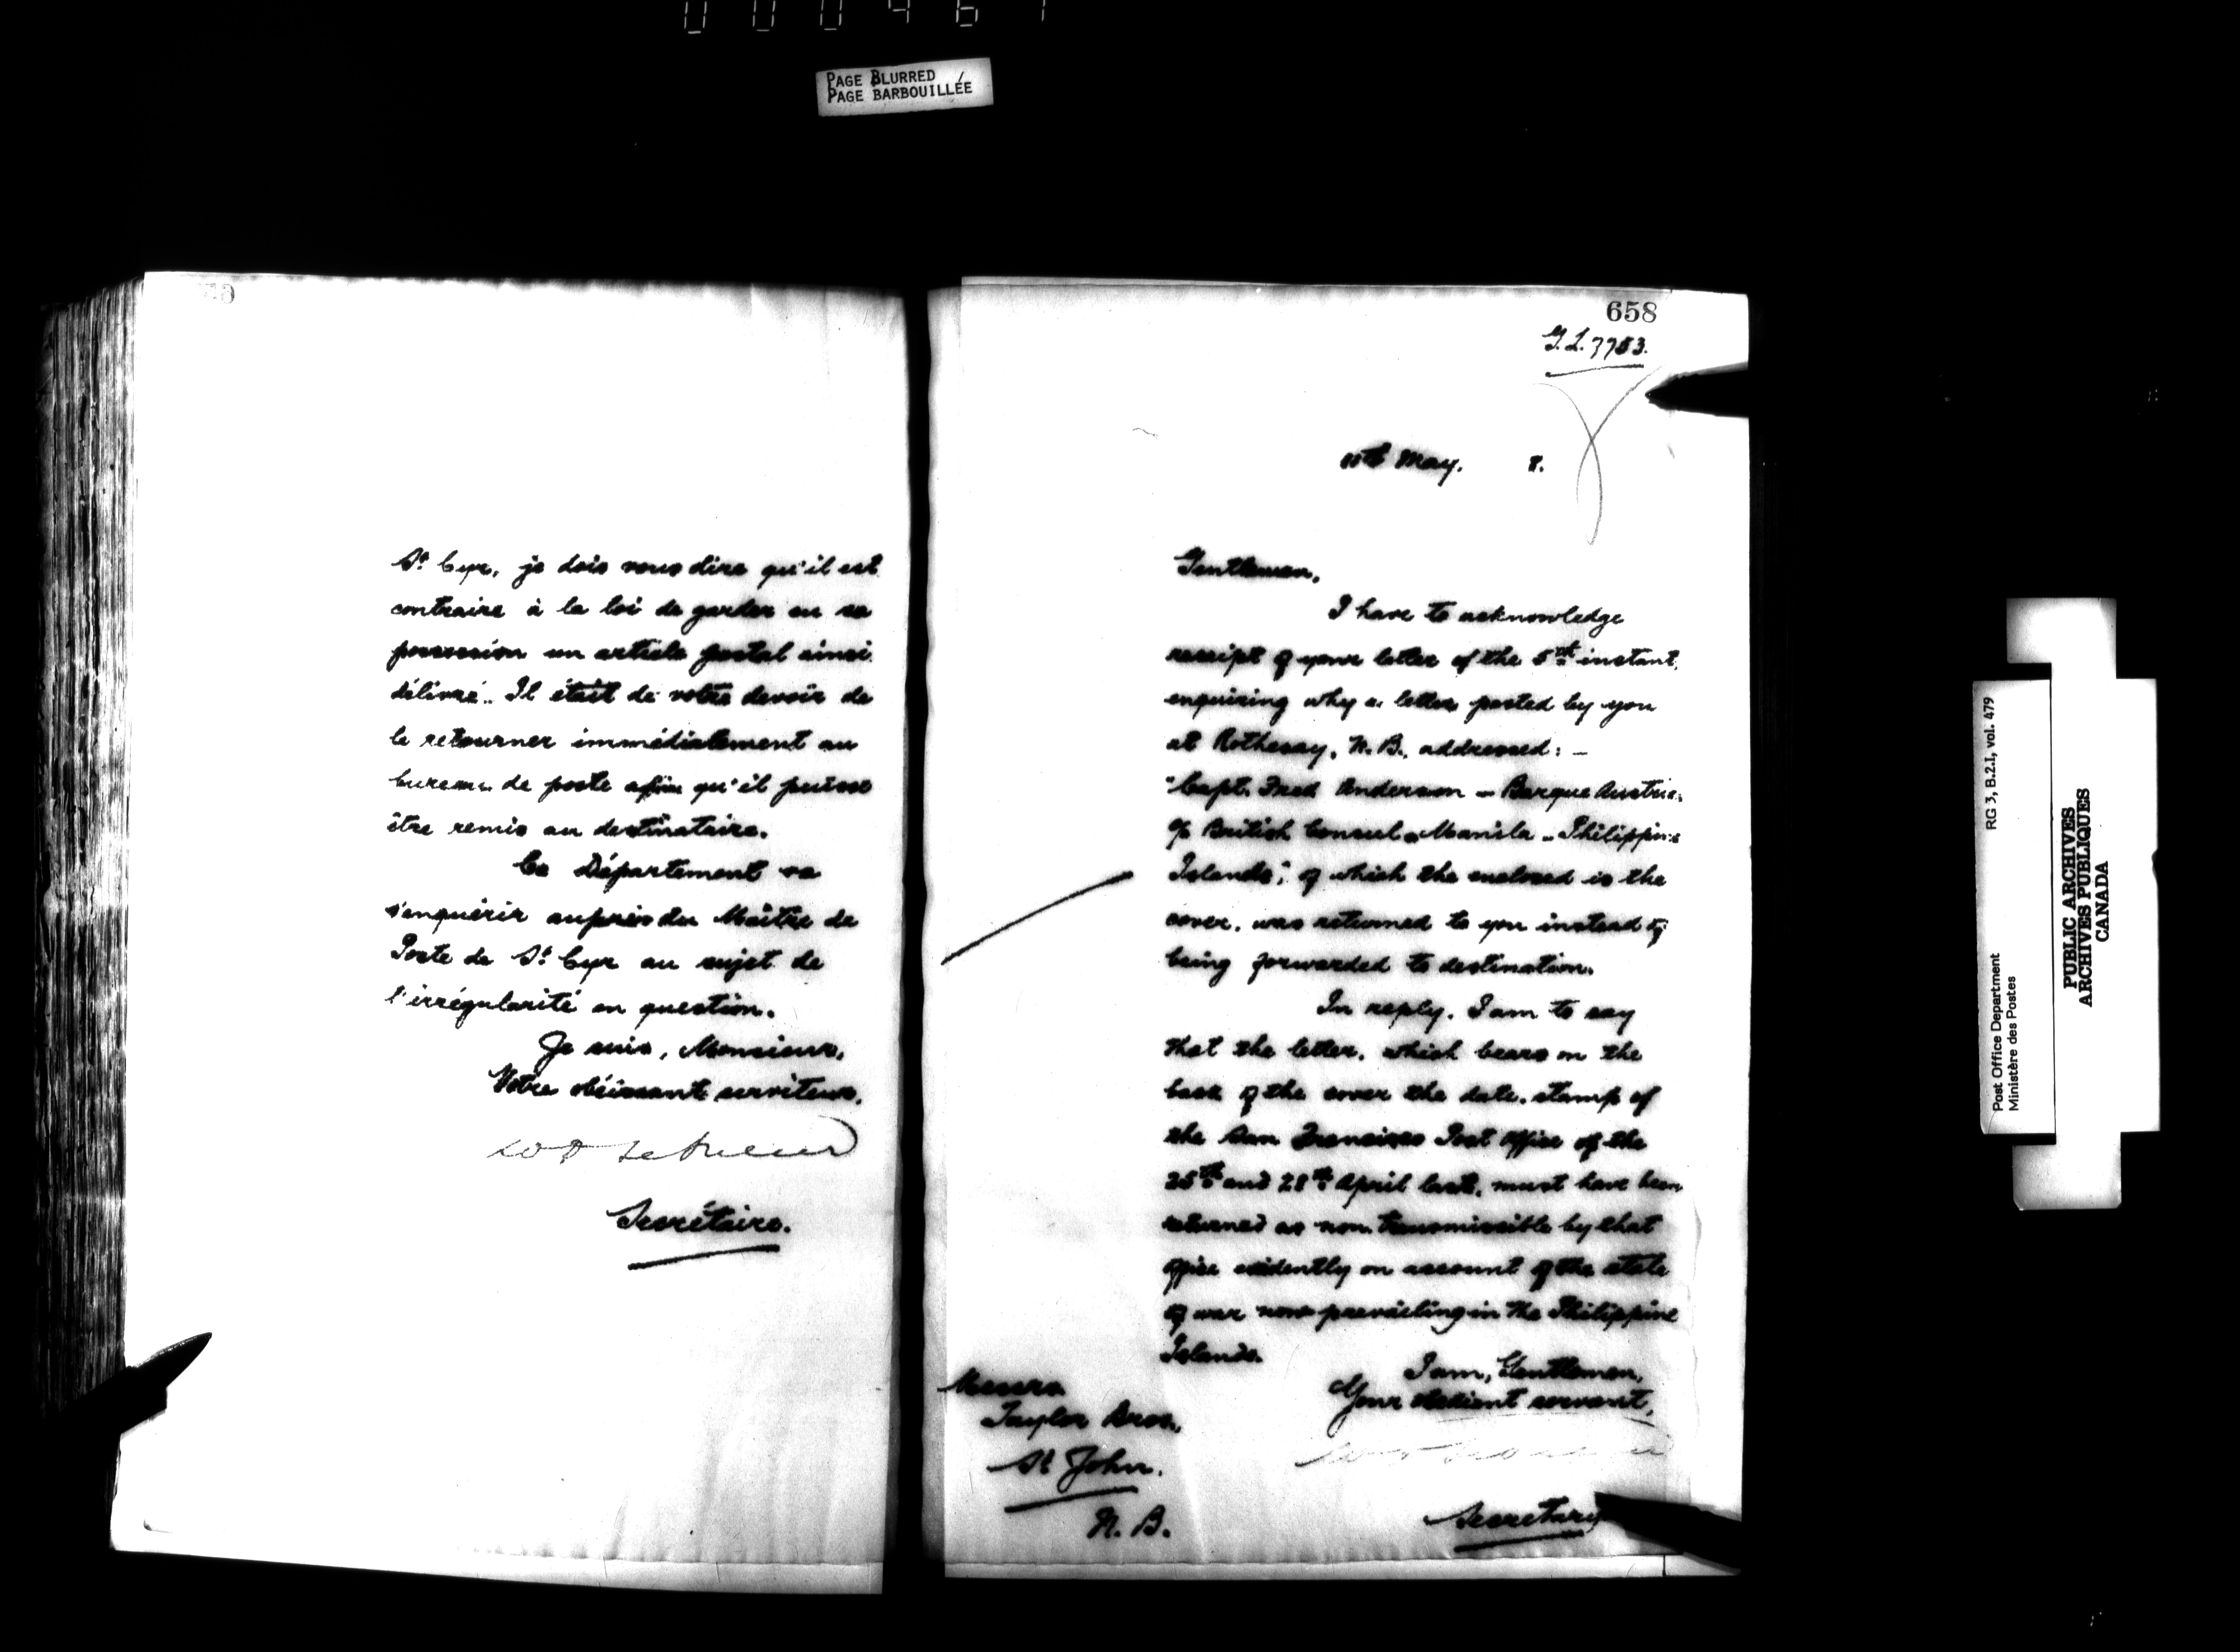 PAGE BLURRED
PAGE BARBOUILLÉE
St Cyr, je dois vous dire qu'il est
contraire à la loi de garder en sa
possession un article postal ainsi
délivré. Il était de votre devoir de
le retourner immédiatement au
bureau de poste afin qu'il puisse
être remis au destinataire.
Ce Département va
s'enquérir auprès du Maître de
Poste de St Cyr au sujet de
l'irrégularité en question.
Je suis, Monsieur,
Votre obéissant serviteur,
Secrétaire.
658
G.L. 7753.
10th May. 8.
Gentlemen,
I have to acknowledge
receipt of your letter of the 5th instant,
enquiring why a letter posted by you
at Rothesay, N.B., addressed: –
"Capt. Fred Anderson – Barque Austria,
c/o British Consul – Manila – Philippine
Islands", of which the enclosed is the
cover, was returned to you instead of
being forwarded to destination.
In reply, I am to say
that the letter, which bears on the
back of the cover the date-stamp of
the San Francisco Post Office of the
25th and 28th April last, must have been
returned as non-transmissible by that
office evidently on account of the state
of war now prevailing in the Philippine
Islands.
I am, Gentlemen,
Your obedient servant,
Secretary
Messrs
Taylor Bros,
St John.
N.B.
Post Office Department
Ministère des Postes
RG 3, B.2.I, vol. 479
PUBLIC ARCHIVES
ARCHIVES PUBLIQUES
CANADA